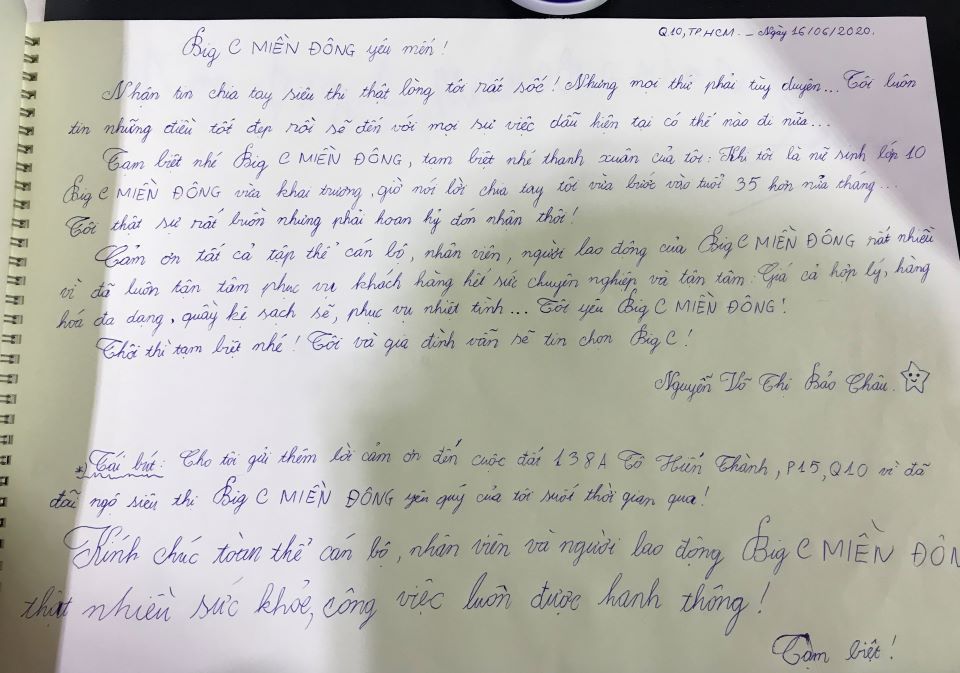 Q10, TP.HCM. - Ngày 16/06/2020.
Big C MIỀN ĐÔNG yêu mến!
Nhận tin chia tay siêu thị thật lòng tôi rất sốc! Nhưng mọi thứ phải tùy duyên... Tôi luôn
tin những điều tốt đẹp rồi sẽ đến với mọi sự việc dẫu hiện tại có thế nào đi nữa...
Tạm biệt nhé Big C MIỀN ĐÔNG, tạm biệt nhé thanh xuân của tôi: Khi tôi là nữ sinh lớp 10
Big C MIỀN ĐÔNG vừa khai trương, giờ nói lời chia tay tôi vừa bước vào tuổi 35 hơn nửa tháng...
Tôi thật sự rất buồn nhưng phải hoan hỷ đón nhận thôi!
Cảm ơn tất cả tập thể cán bộ, nhân viên, người lao động của Big C MIỀN ĐÔNG rất nhiều
vì đã luôn tận tâm phục vụ khách hàng hết sức chuyên nghiệp và tận tâm: Giá cả hợp lý, hàng
hoá đa dạng, quầy kệ sạch sẽ, phục vụ nhiệt tình... Tôi yêu Big C MIỀN ĐÔNG!
Thôi thì tạm biệt nhé! Tôi và gia đình vẫn sẽ tin chọn Big C!
Nguyễn Võ Thị Bảo Châu.
*) Tái bút: Cho tôi gửi thêm lời cảm ơn đến cuộc đất 138A Tô Hiến Thành, P15, Q10 vì đã
đãi ngộ siêu thị Big C MIỀN ĐÔNG yêu quý của tôi suốt thời gian qua!
Kính chúc toàn thể cán bộ, nhân viên và người lao động Big C MIỀN ĐÔN
thật nhiều sức khỏe, công việc luôn được hanh thông!
Tạm biệt!